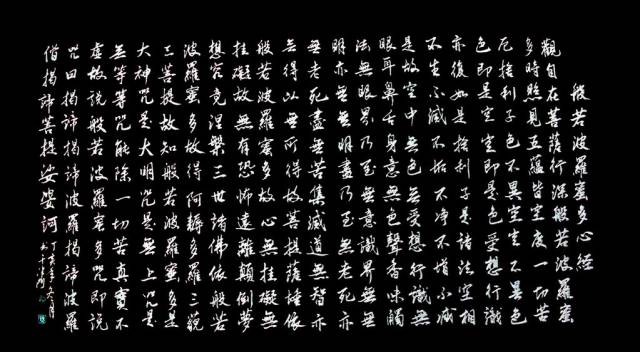 般若波羅蜜多心經
觀自在菩薩行深般若波羅蜜
多時照見五蘊皆空度一切苦
厄捨利子色不異空空不異色
色即是空空即是色受想行識
亦復如是捨利子是諸法空相
不生不滅不垢不淨不增不減
是故空中無色無受想行識無
眼耳鼻舌身意無色聲香味觸
法無眼界乃至無意識界無無
明亦無無明盡乃至無老死亦
無老死盡無苦集滅道無智亦
無得以無所得故菩提薩埵依
般若波羅蜜多故心無挂礙無
挂礙故無有恐怖遠離顛倒夢
想究竟涅槃三世諸佛依般若
波羅蜜多故得阿耨多羅三藐
三菩提故知般若波羅蜜多是
大神咒是大明咒是無上咒是
無等等咒能除一切苦真實不
虛故說般若波羅蜜多咒即說
咒曰揭諦揭諦波羅揭諦波羅
僧揭諦菩提娑婆訶
丁亥年